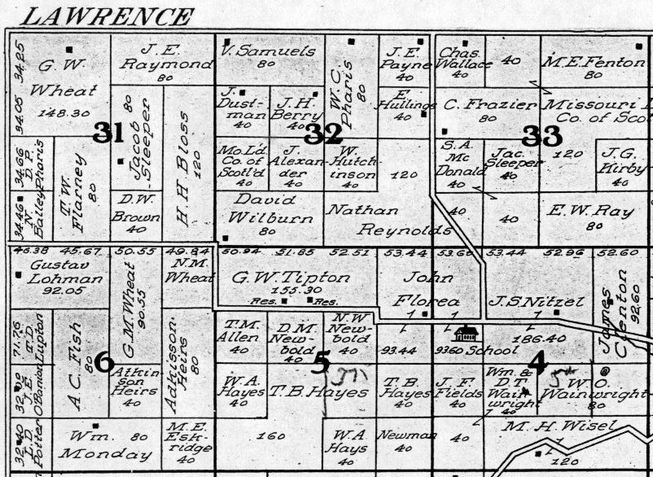 LAWRENCE
34.25
G. W.
Wheat
148.30
34.05
31
34.66
34.46
Bailey Pharis
T. W.
Flarney
80
J. E.
Raymond
80
Jacob
Sleeper
80
D. W.
Brown
40
H. H. Bloss
120
V. Samuels
80
J.
Dust-
man
40
J. H.
Berry
40
W. C.
Pharis
80
J. E.
Payne
40
E.
Hulings
40
32
Mo. Ld.
Co. of
Scotl'd
40
J.
Alexan
der
40
W.
Hutch-
inson
40
120
David
Wilburn
80
Nathan
Reynolds
Chas.
Wallace
40
40
M. E. Fenton
80
C. Frazier
80
Missouri L
Co. of Scot
33
S. A.
Mc
Donald
40
Jac.
Sleeper
40
120
J. G.
Kirby
40
40
40
E. W. Ray
80
46.38 45.67 50.55 49.84 50.94 51.85 52.51 53.44 53.60 53.44 52.96 52.60
Gustav
Lohman
92.05
G. M. Wheat
90.55
N. M.
Wheat
G. W. Tipton
155.30
Res. Res.
John
Florea
J. S. Nitzel
186.40
James
Clenton
92.60
71.76
Lupton
A. C. Fish
80
6
Atkin-
son
Heirs
40
Adkisson
Heirs
80
32.40
Potter
Wm. 80
Monday
M. E.
Esk-
ridge
40
T. M.
Allen
40
D. M.
New-
bold
40
N. W.
New-
bold
40
93.44
93.60
School
5
W. A.
Hayes
40
T. B. Hayes
160
T. B.
Hayes
40
W. A.
Hays
40
Newman
40
J. F.
Fields
40
Wm. &
D. T.
Wain
wright
40
4
W. O.
Wainwright
80
40
M. H. Wisel
120